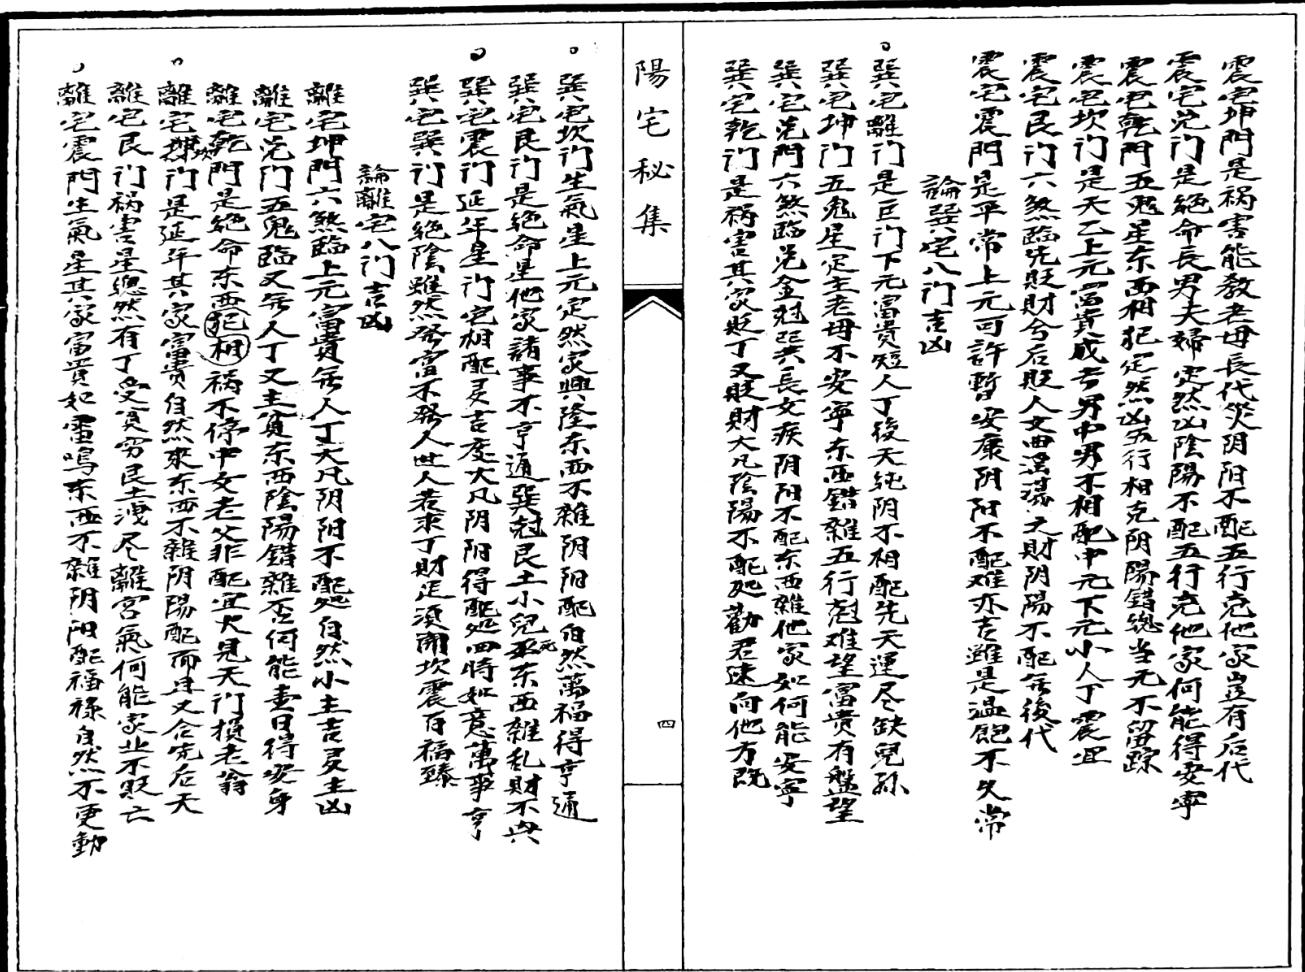 震宅坤門是祸害能教老母長代災阴阳不配五行克他家豈有后代
震宅兑门是絕命長男夫婦定然凶陰陽不配五行克他家何能得安寧
震宅乾門五鬼星东西相犯定然凶五行相克阴陽錯總当元不留踪
震宅坎门是天乙上元富貴成考男中男不相配中元下元小人丁震宜
震宅艮门六煞臨先贬財兮后贬人文曲滛蕩之財阴陽不配无後代
震宅震門是平常上元可許暫安康阴阳不配难亦吉雖是温飽不久常
論巽宅八门吉凶
巽宅離门是巨门下元富貴短人丁後天純阴不相配先天運尽缺兒孫
巽宅坤门五鬼星定主老母不安寧东西錯雜五行尅难望富贵有盤望
巽宅兑門六煞臨兑金尅巽長女疾阴阳不配东西雜他家如何能安寧
巽宅乾门是祸害其家贬丁又贬財大凡陰陽不配处勸君速向他方既
陽宅秘集
四
巽宅坎门生氣星上元定然家興隆东西不雜阴阳配自然萬福得亨通
巽宅艮门是絕命星他家諸事不亨通巽尅艮土小兒死东西雜乱財不興
巽宅震门延年星门宅相配灵吉度大凡阴阳得配处四時如意萬事亨
巽宅巽门是絕陰雖然發富不發人世人若求丁財足須開坎震百福臻
論離宅八门吉凶
離宅坤門六煞臨上元富貴无人丁大凡阴阳不配处自然小主吉灵主凶
離宅兑门五鬼臨又无人丁又主貧东西陰陽錯雜否何能壹日得安身
離宅乾門是絕命东西犯相祸不停中女老父非配宜火見天门損老翁
離宅坎门是延年其家富貴自然來东西不雜阴陽配而且又合先后天
離宅艮门祸害星總然有丁受貧穷艮土洩尽離宮氣何能家业不贬亡
離宅震門生氣星其家富贵如雷鳴东西不雜阴阳配福祿自然不更動